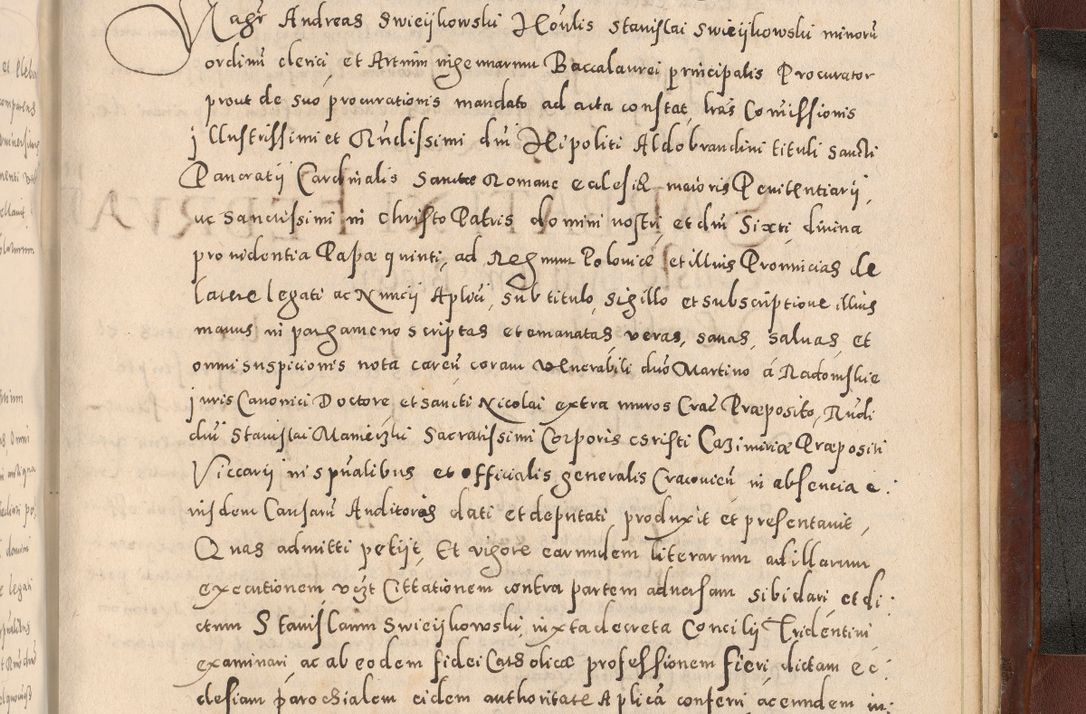 Magr Andreas Swieijkowski Honlis Stanislai Swieijkowski minorū
ordinū clerici et Artium ingenuarum Baccalaurei principalis Procurator
prout de suo procurationis mandato ad acta constat, lras Comissionis
jllustrissimi et Rndissimi dni Hipoliti Aldobrandini tituli Sancti
Pancratij Cardinalis Sanctae Romane ecclesiæ maioris Penitentiarij,
ac Sanctissimi in Christo Patris domini nostri, et dni Sixti divina
providentia Papæ quinti, ad Regnum Polonicæ et illius Provincias de
latere legati ac Nuncij Aplici, sub titulo, sigillo et subscriptione illius
manus in pargameno scriptas et emanatas, veras, sanas, salvas, et
omni suspicionis nota careñ coram venerabili dno Martino á Radomskie
juris Canonici Doctore, et Sancti Nicolai extra muros Crac Præposito, Rndi
dni Stanislai Manierzki Sacratissimi Corporis christi Cazimiriæ Præpositi
Viccarij in spualibus et officialis generalis Cracovieñ in absencia e:
iusdem Causarū Auditoris dati et deputati produxit et presentavit,
Quas admitti petijt, Et vigore earundem literarum ad illarum
executionem vczt Cittationem contra partem adversam sibi dari et di:
ctum Stanislaum Swieijkowski, iuxta decreta Concilij Tridentini
examinari ac ab eodem fidei Catholicæ professionem fieri, dictam ec:
clesiam parochialem eidem authoritate Aplica conferri ac eundem in: